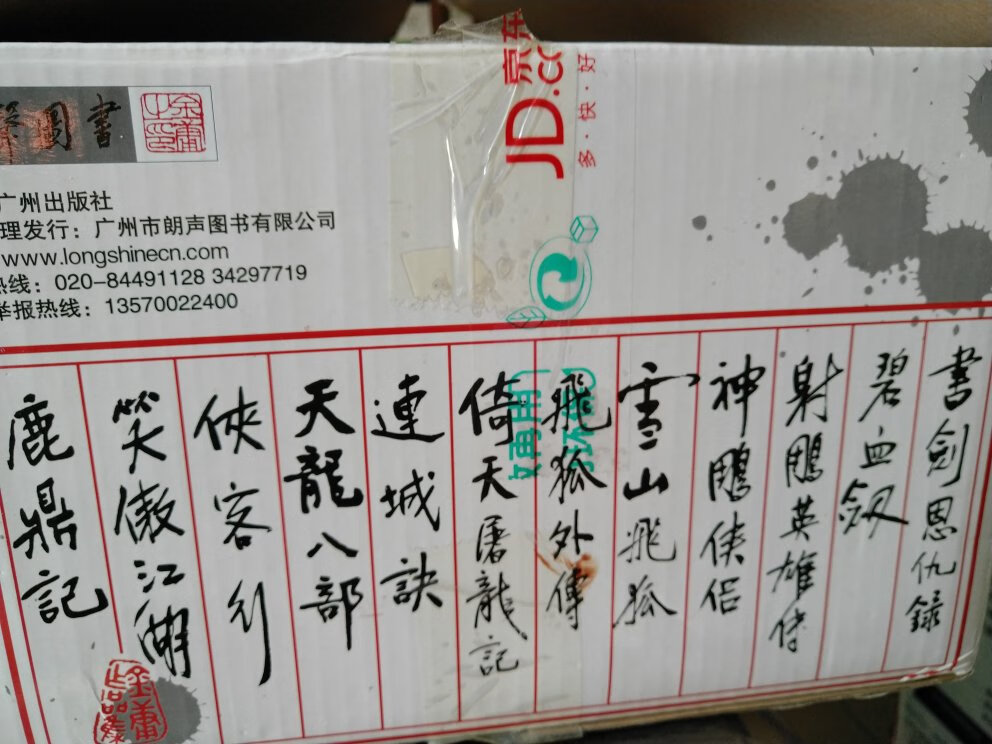 圖書
金庸之印
广州出版社
理发行：广州市朗声图书有限公司
www.longshinecn.com
热线：020-84491128 34297719
举报热线：13570022400
JD.CO
京东
多·快·好
書劍恩仇録
碧血劍
射鵰英雄傳
神鵰俠侶
雪山飛狐
飛狐外傳
倚天屠龍記
連城訣
天龍八部
俠客行
笑傲江湖
鹿鼎記